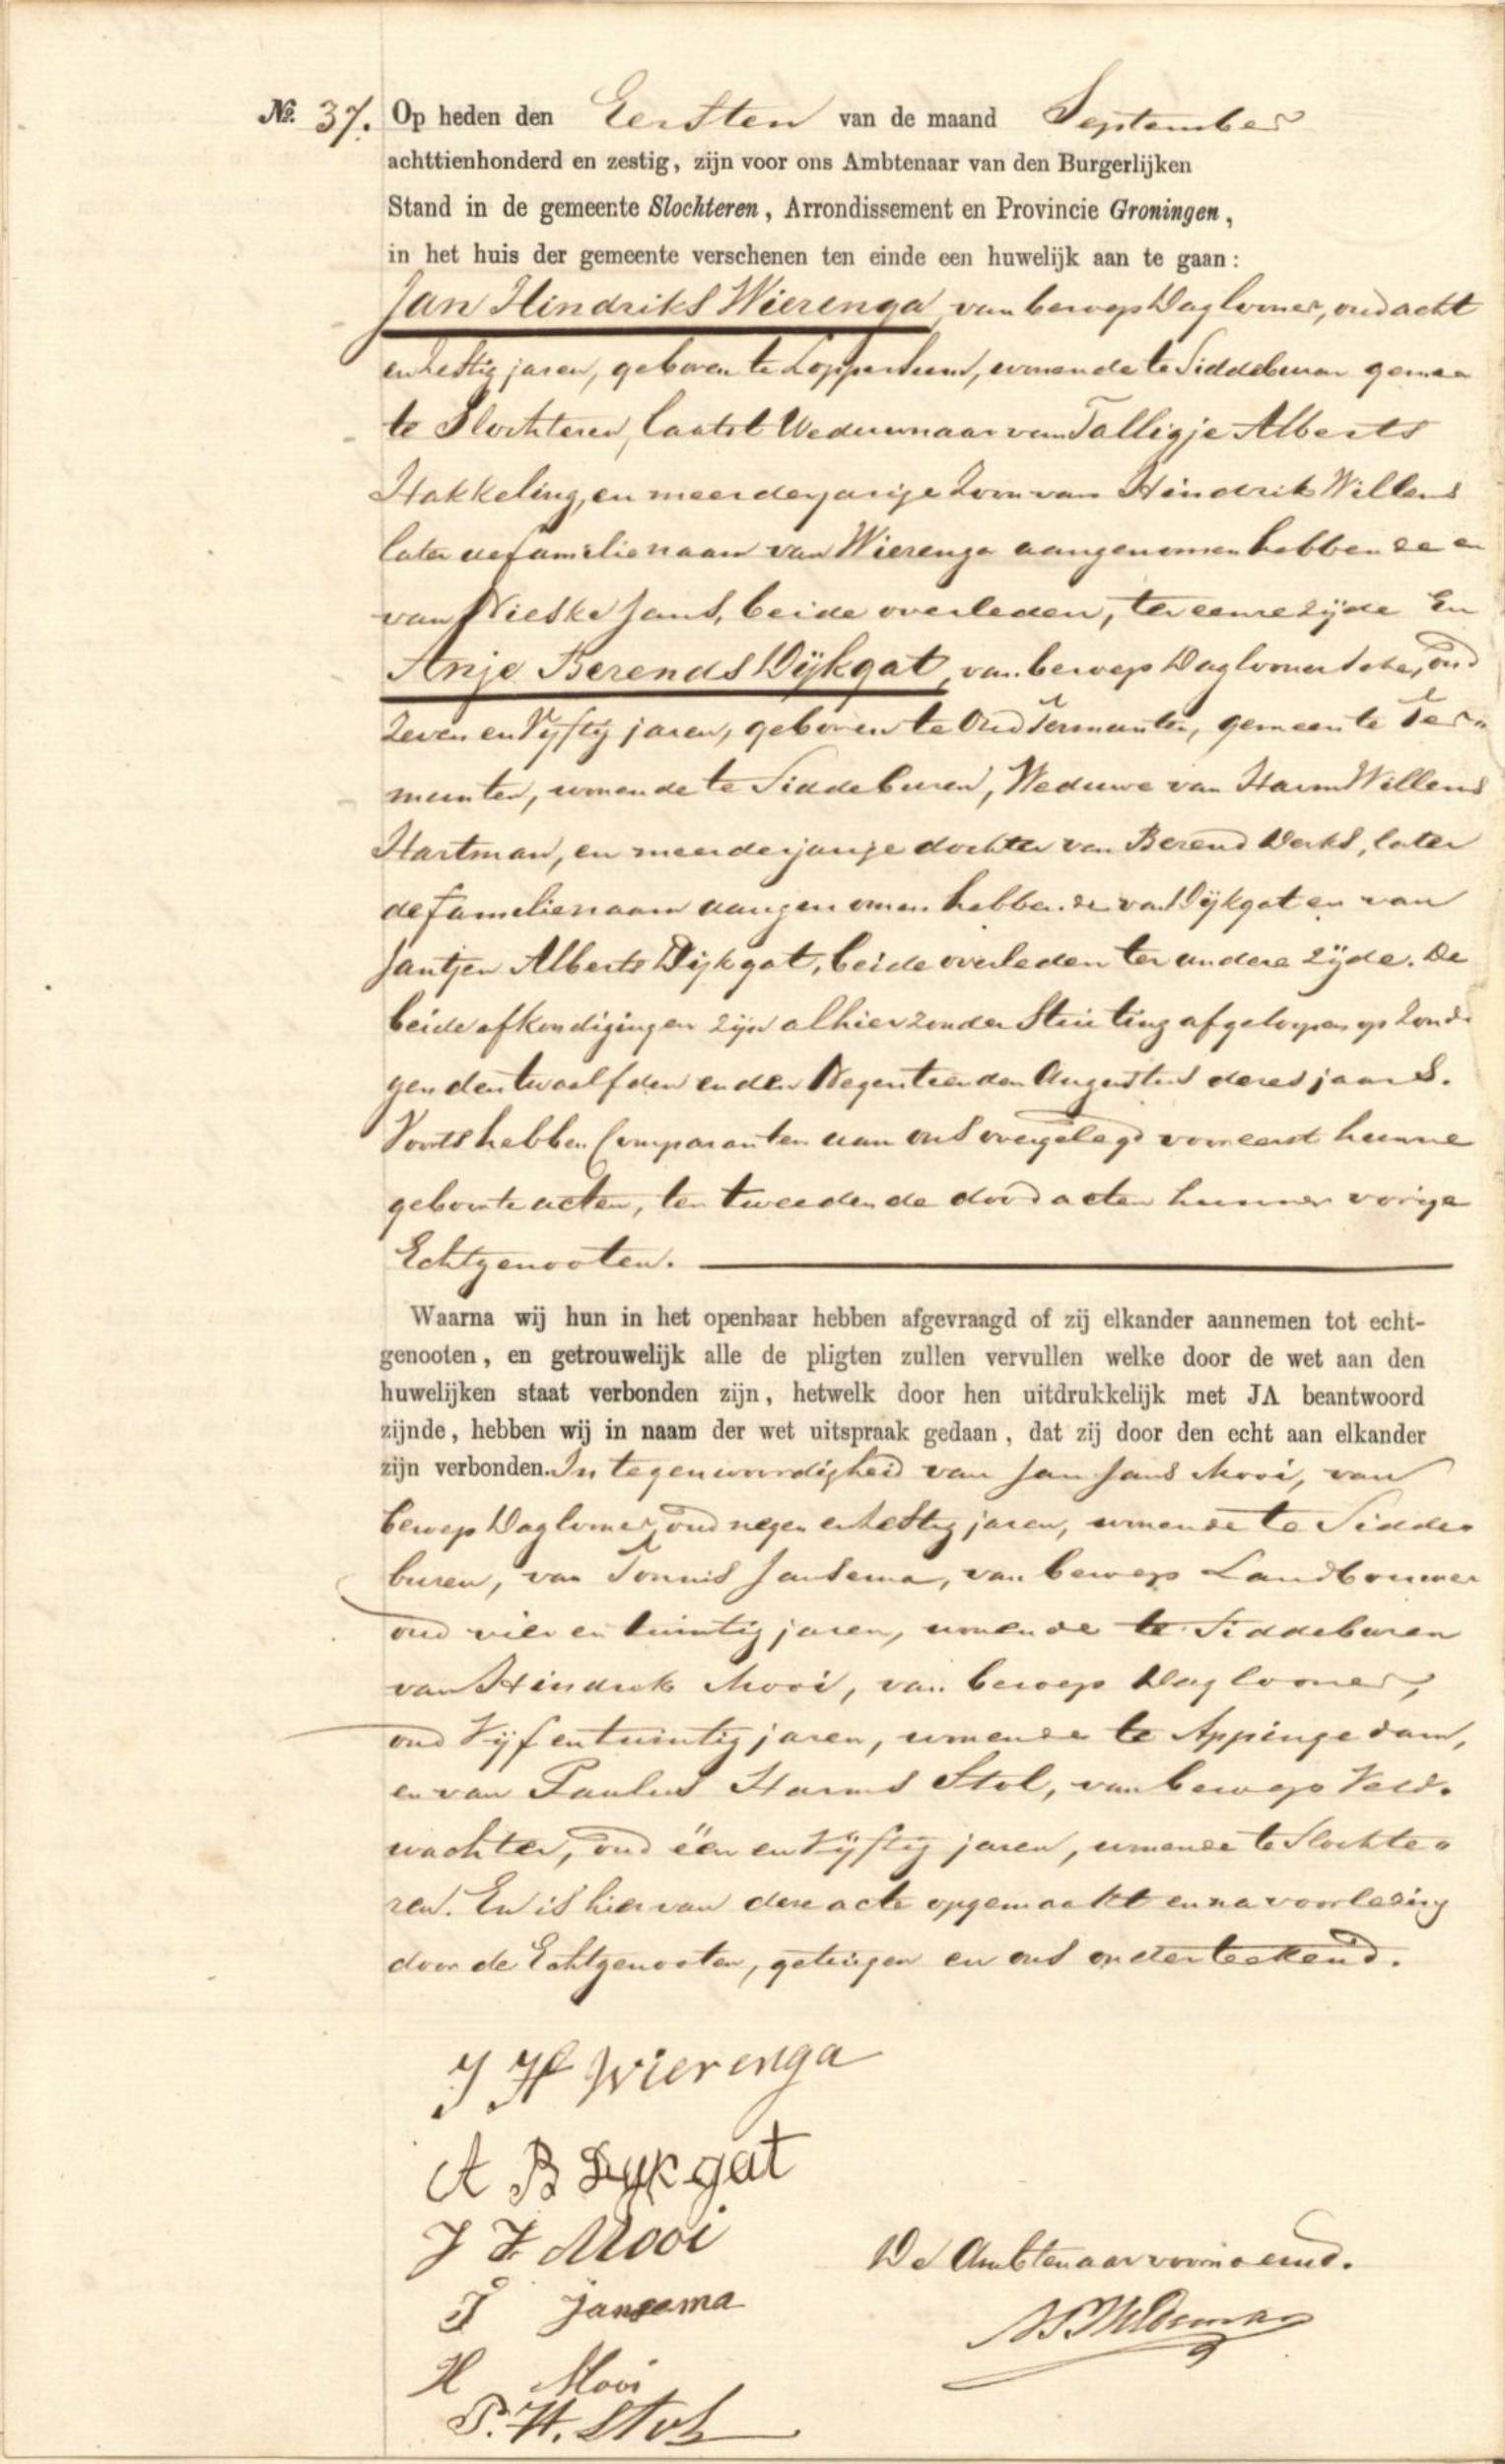 №. 37. Op heden den Eersten van de maand September
achttienhonderd en zestig, zijn voor ons Ambtenaar van den Burgerlijken
Stand in de gemeente Slochteren, Arrondissement en Provincie Groningen,
in het huis der gemeente verschenen ten einde een huwelijk aan te gaan:
Jan Hindriks Wierenga, van beroep Daglooner, oud acht
en zestig jaren, geboren te Loppersum, wonende te Siddeburen gemeen
te Slochteren, laatst Weduwnaar van Talligje Alberts
Hakkeling, en meerderjarige zoon van Hindrik Willems
later de familienaam van Wierenga aangenomen hebbende en
van Nieske Jans, beide overleden, ter eenre zijde En
Anje Berends Dijkgat, van beroep Daglonersche, oud
zeven en Vijftig jaren, geboren te Oud Termunten, gemeente Ter„
munten, wonende te Siddeburen, Weduwe van Harm Willems
Hartman, en meerderjarige dochter van Berend Derks, later
de familienaam aangenomen hebbende van Dijkgat en van
Jantjen Alberts Dijkgat, beide overleden ter andere zijde. De
beide afkondigingen zijn alhier zonder Stuiting afgeloopen op Zonda
gen den twaalfden en den Negentienden Augustus dezes jaars.
Voorts hebben Comparanten aan ons overgelegd vooreerst hunne
geboorte acten, ten tweeden de dood acten hunner vorige
Echtgenooten.
Waarna wij hun in het openbaar hebben afgevraagd of zij elkander aannemen tot echt-
genooten, en getrouwelijk alle de pligten zullen vervullen welke door de wet aan den
huwelijken staat verbonden zijn, hetwelk door hen uitdrukkelijk met JA beantwoord
zijnde, hebben wij in naam der wet uitspraak gedaan, dat zij door den echt aan elkander
zijn verbonden. In tegenwoordigheid van Jan Jans Mooi, van
beroep Daglooner, oud negen en zestig jaren, wonende te Sidde„
buren, van Tonnis Jansema, van beroep Landbouwer
oud vier en twintig jaren, wonende te Siddeburen
van Hindrik Mooi, van beroep Daglooner,
oud Vijf en twintig jaren, wonende te Appingedam,
en van Paulus Harms Stol, van beroep Veld„
wachter, oud één en Vijftig jaren, wonende te Slochte„
ren. En is hiervan deze acte opgemaakt en na voorlezing
door de Echtgenooten, getuigen en ons onderteekend.
J H Wierenga
A B Dykgat
J J Mooi
De Ambtenaar voornoemd.
T Jansema
H Mooi
P. H. Stol